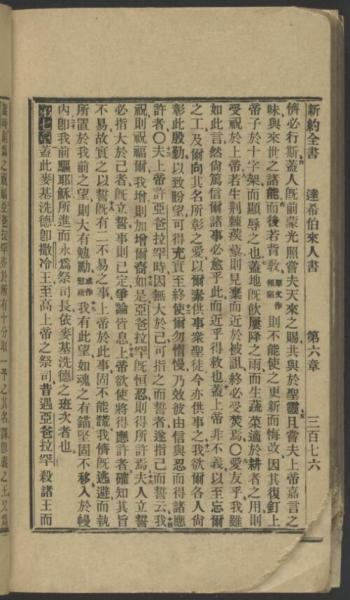 新約全書　達希伯來人書　第六章　三百七六
儕必行斯蓋人既前蒙光照嘗夫天來之賜共與於聖靈且嘗夫上帝嘉言之
味與來世之諸能而後若背教則不能使之更新而悔改因其復釘上
帝子於十字架而顯辱之也蓋地既飲屢降之雨而生蔬菜適於耕者之用則
受祝於上帝若生荊棘蒺藜則見棄而近於被詛終必受焚焉〇愛友乎我雖
如此言然尚篤信爾諸事必愈乎此而近乎得救也蓋上帝非不義以至忘爾
之工及爾向其名所彰之愛以爾素供事衆聖徒今亦供事之我欲爾各人尚
彰此殷勤以致盼望可得充實至終使爾勿惰慢乃效彼由信與忍而得諸應
許者〇夫上帝許亞伯拉罕時因無大於己可指之而誓者遂指己而誓云我
祝則祝福爾我增則加增爾裔如是亞爸拉罕既恒忍則得所許焉夫人立誓
必指大於己者既立誓事則已定爭論皆息上帝欲使將得應許者確知其旨
不易故實之以誓既有二不易之事上帝於此事固不能謊我儕既逃避而執
所置於我前之望則大有勉勵我有此望如魂之有錨堅固不移入於幔
內卽我前驅耶穌所進而永爲祭司長依麥基洗德之班次者也
第七章　蓋此麥基洗德卽撒冷王至高上帝之祭司昔遇亞爸拉罕殺諸王而